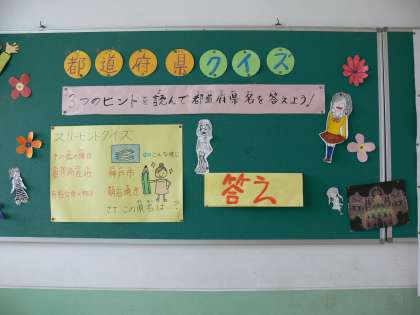 都道府県クイズ
3つのヒントを読んで都道府県名を答えよう!
スリーヒントクイズ
のこんな感じ
神戸市
明石焼き
さて、この県名は?
答え